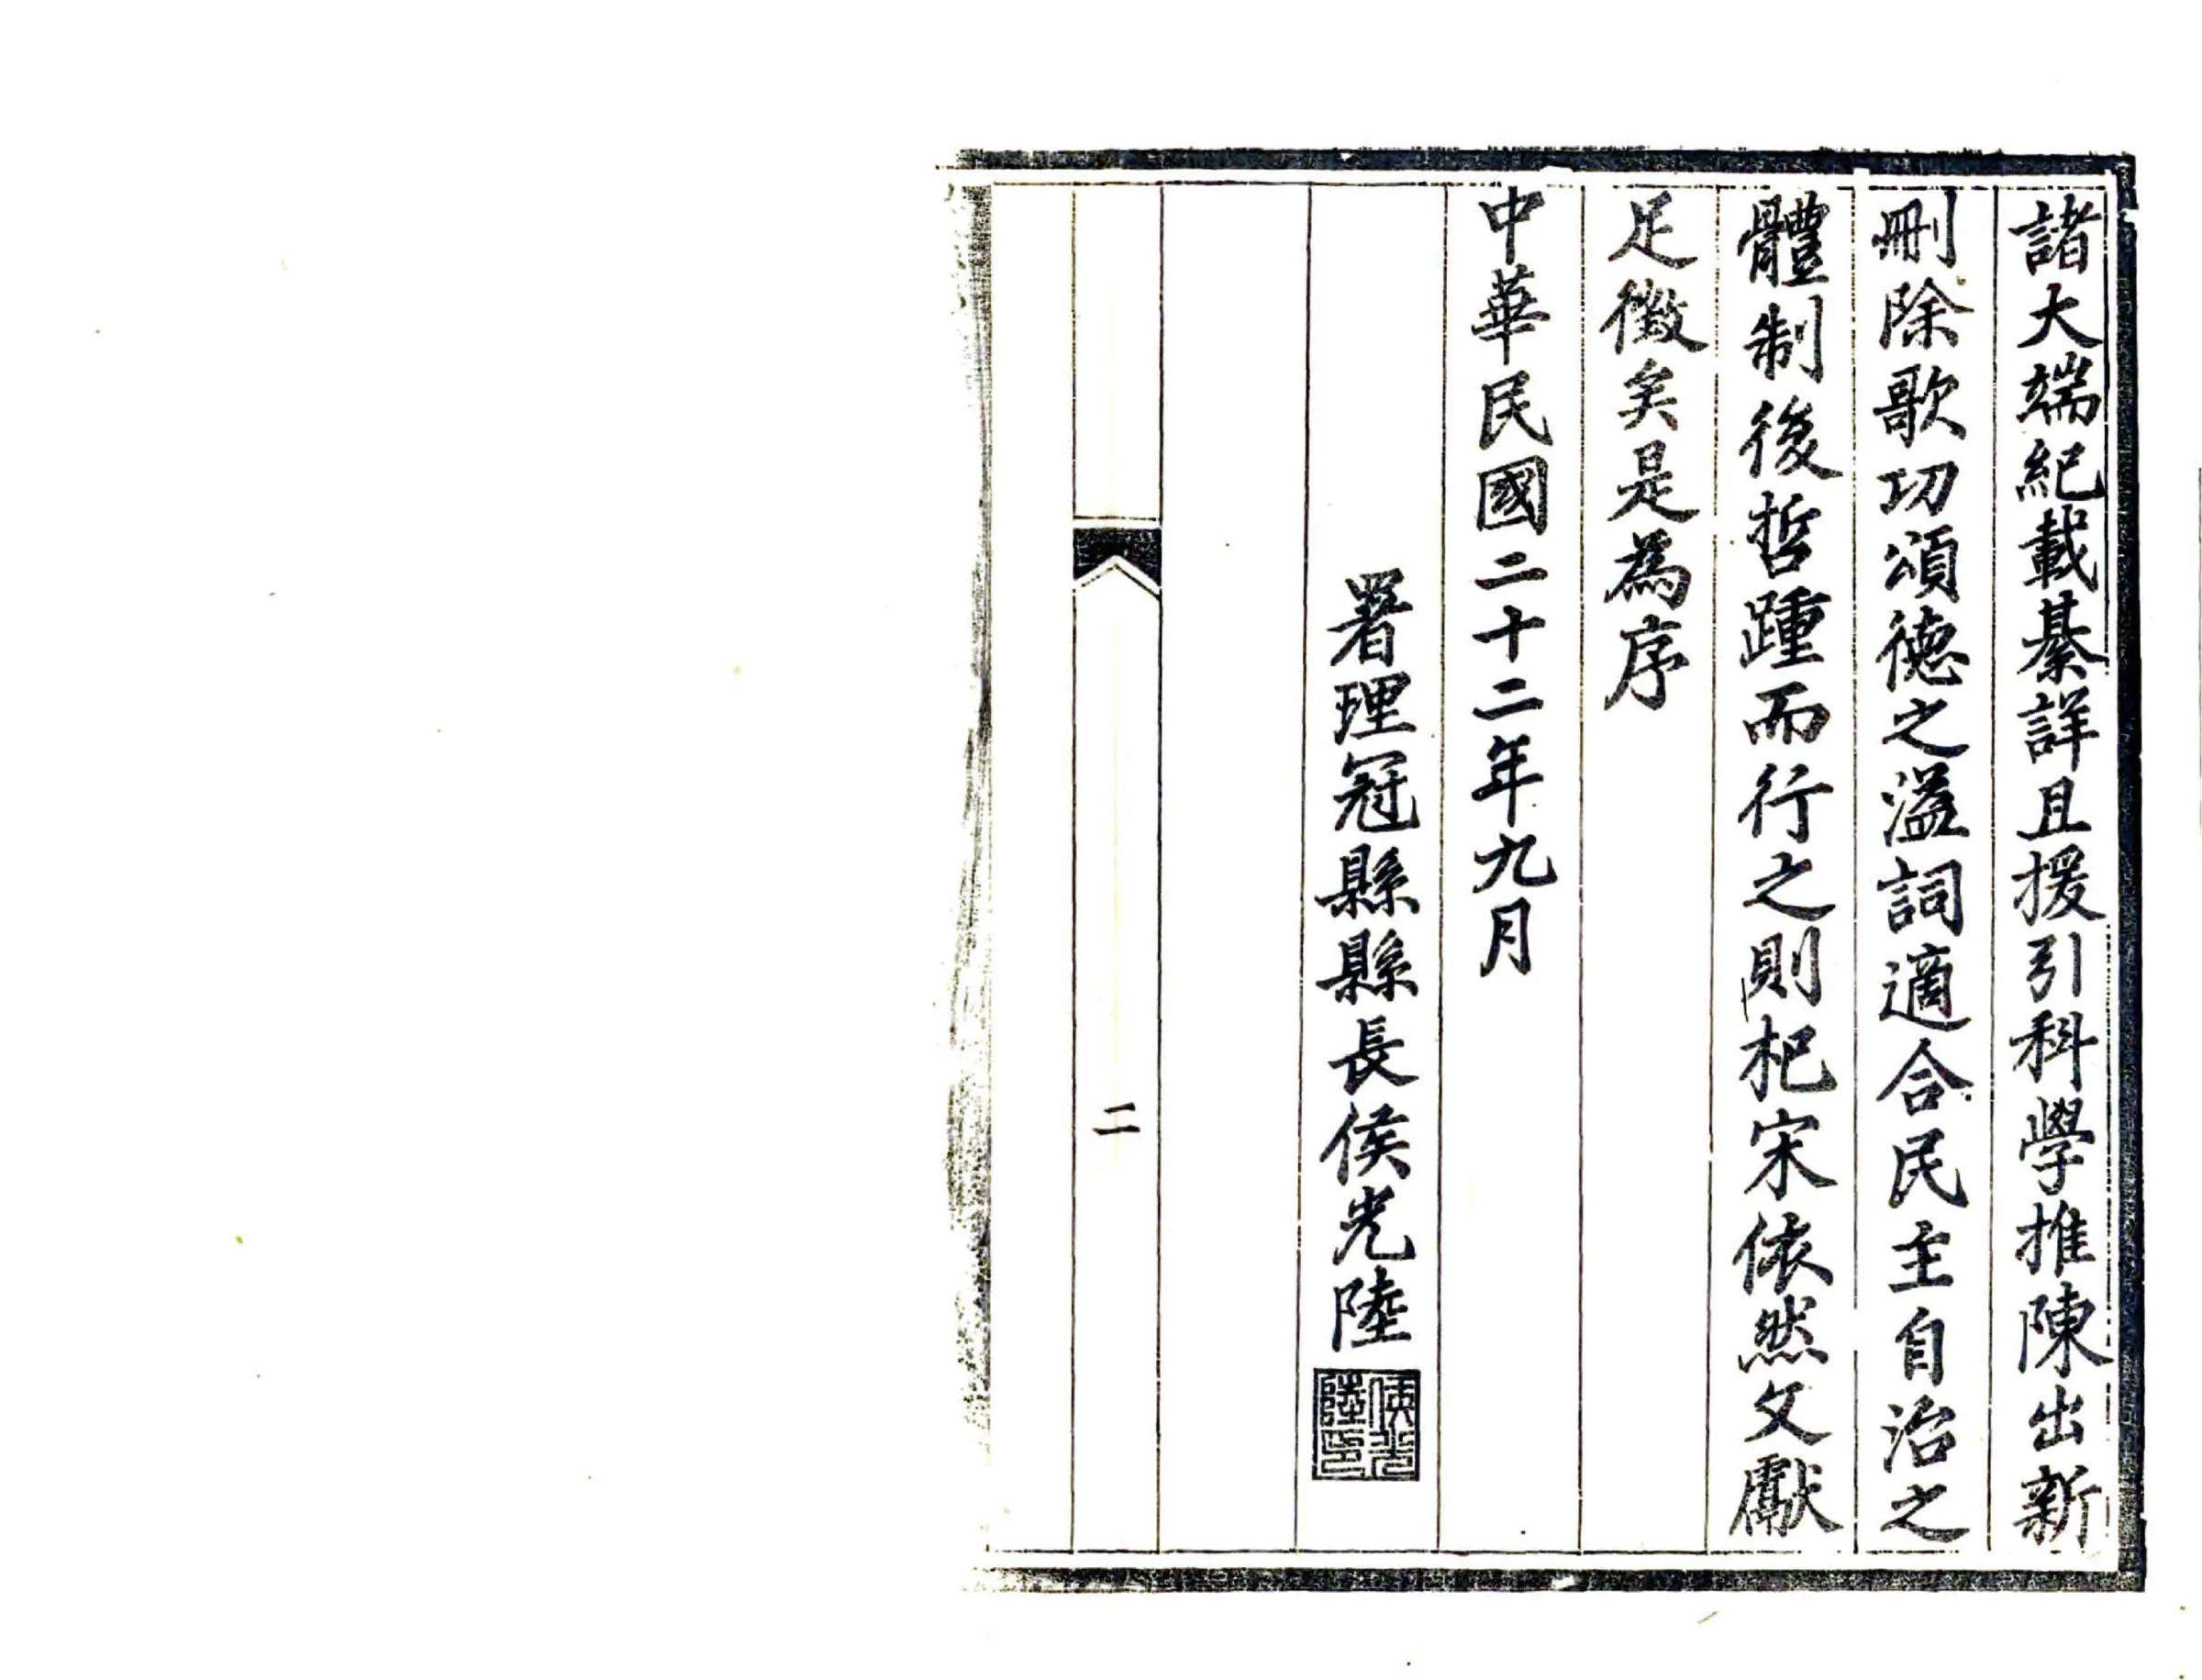 諸大端紀載綦詳且援引科學推陳出新
刪除歌功頌德之溢詞適合民主自治之
體制後哲踵而行之則杞宋依然文獻
足徵矣是為序
中華民國二十二年九月
署理冠縣縣長侯光陸
侯光
陸印
二